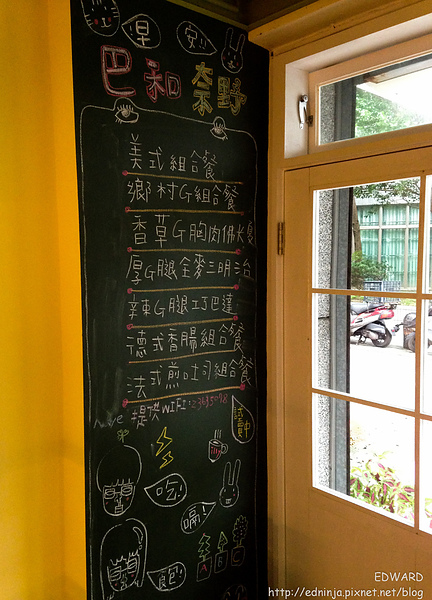 早 安!!
巴和 奈野
美式組合餐
鄉村G組合餐
香草G胸肉佛卡夏
厚G腿全麥三明治
辣G腿巧巴達
德式香腸組合餐
法式煎吐司組合餐
提供WIFI:
試賣中
吃
嗝!
飽
EDWARD
http://edninja.pixnet.net/blog